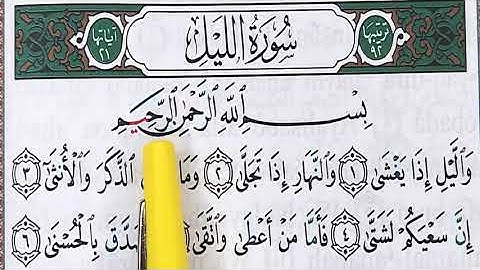 ترتيبها ٩٢ سُورَةُ اللَّيْلِ آياتها ٢١
بِسْمِ اللَّهِ الرَّحْمَٰنِ الرَّحِيمِ
وَٱلَّيْلِ إِذَا يَغْشَىٰ ١ وَٱلنَّهَارِ إِذَا تَجَلَّىٰ ٢ وَمَا ٱلذَّكَرَ وَٱلْأُنثَىٰٓ ٣
إِنَّ سَعْيَكُمْ لَشَتَّىٰ ٤ فَأَمَّا مَنْ أَعْطَىٰ وَٱتَّقَىٰ بِٱلْحُسْنَىٰ ٦